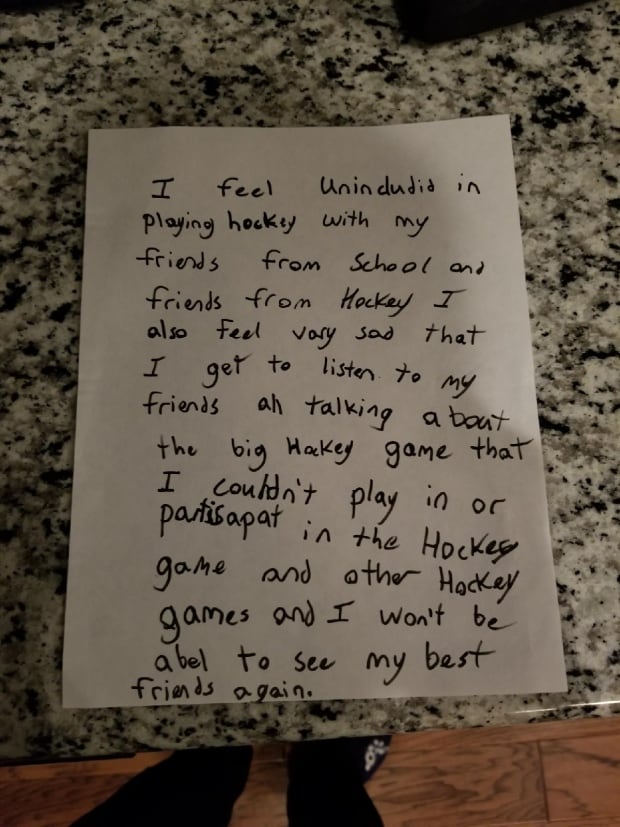 I feel Unincludid in
playing hockey with my
friends from School and
friends from Hockey I
also feel vary sad that
I get to listen to my
friends ah talking about
the big Hockey game that
I couldn't play in or
partisapat in the Hockey
game and other Hockey
games and I won't be
abel to see my best
friends again.